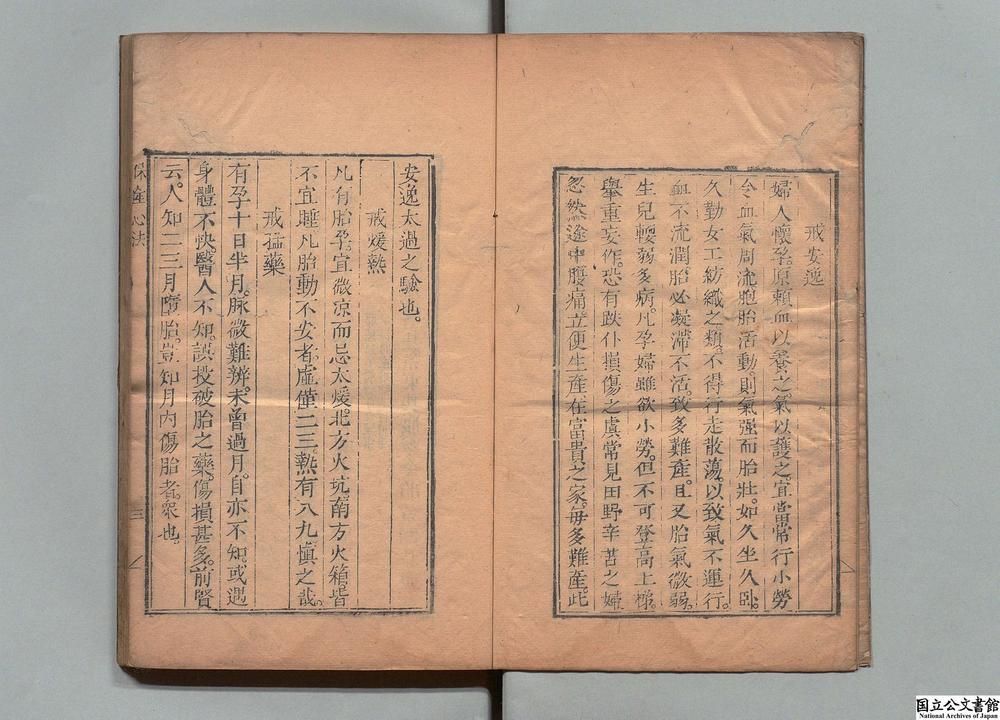 戒安逸
婦人懷孕。原賴血以養之。氣以護之。宜當常行小勞
令血氣周流胞胎活動。則氣强而胎壯。如久坐久臥。
久勤女工紡織之類。不得行走散蕩。以致氣不運行。
血不流潤。胎必凝滯不活。致多難產。且又胎氣微弱。
生兒輭弱多病。凡孕婦雖欲小勞。但不可登高上梯。
舉重妄作。恐有跌仆損傷之虞常見田野辛苦之婦
忽然途中腹痛立便生產在富貴之家。每多難產。此
安逸太過之驗也。
戒煖熱
凡有胎孕。宜微凉而忌太煖。北方火坑南方火箱。皆
不宜睡。凡胎動不安者。虛僅二三。熱有八九愼之哉。
戒猛藥
有孕十日半月。脉微難辨。未曾過月。自亦不知。或遇
身體不快。醫人不知。誤投破胎之藥。傷損甚多。前賢
云。人知二三月墮胎。豈知月內傷胎者。衆也。
保產心法
三
国立公文書館
National Archives of Japan